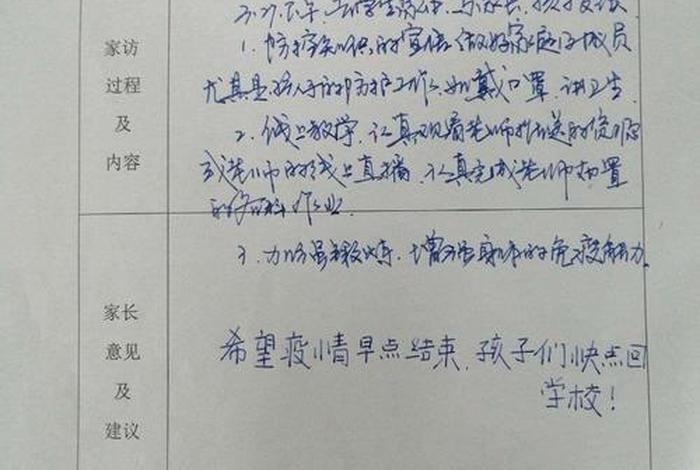 家访
过程
及
内容
3.27.下午，与学生家长、孩子
1.防控知识的宣传，做好家庭各成员
尤其是孩子的防护工作，如戴口罩，讲卫生
2.线上教学，认真观看老师推送的资源
或老师的线上直播，认真完成老师布置
的各科作业.
3.加强锻炼，增强身体的免疫能力.
家长
意见
及
建议
希望疫情早点结束，孩子们快点回
学校！